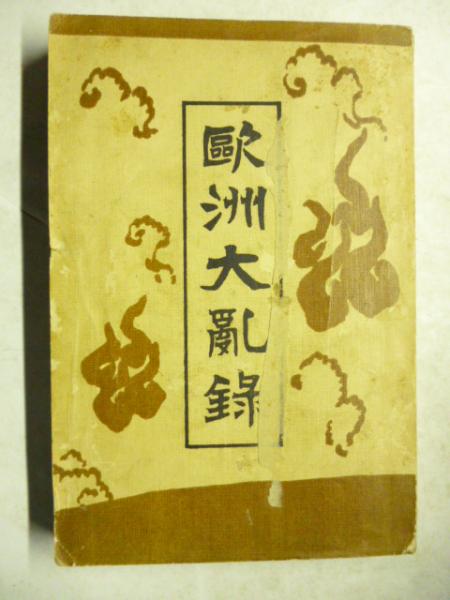 歐洲大亂錄